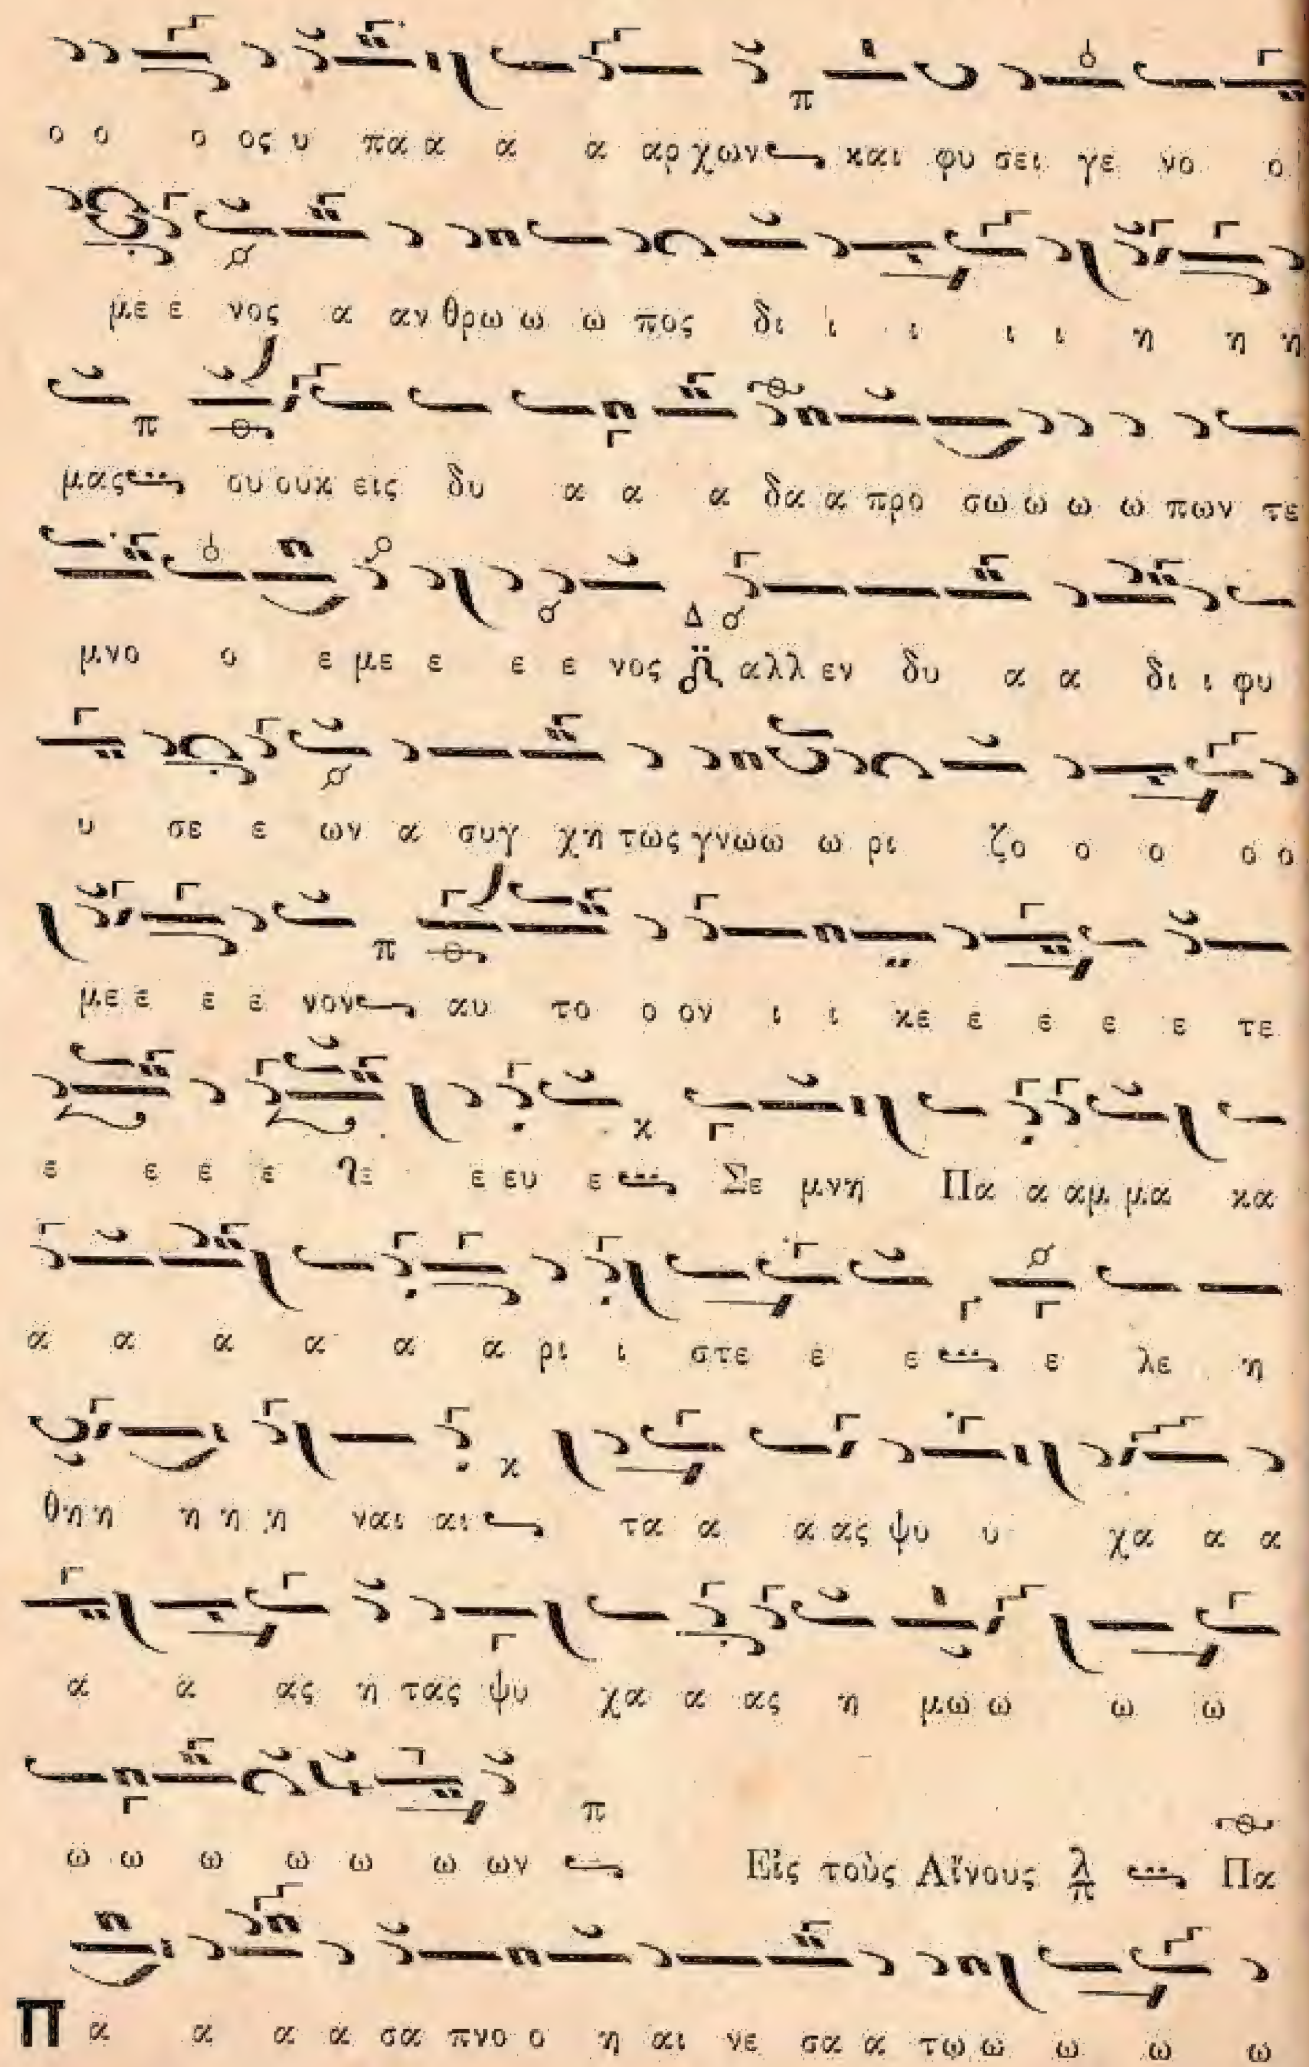 ο ο ο ος υ πα α α α αρ χων και φυ σει γε νο ο
με ε νος α αν θρω ω ω πος δι ι ι ι ι η η η
π
μας ου ουκ εις δυ α α α δα α προ σω ω ω ω πων τε
π
μνο ο ε με ε ε ε νος αλλ εν δυ α α δι ι φυ
Δ
υ σε ε ων α συγ χη τως γνω ω ω ρι ζο ο ο ο ο
με ε ε ε νον αυ το ο ον ι ι κε ε ε ε ε τε
π
ε ε ε ε ε ευ ε Σε μνη Πα α αμ μα κα
κ
α α α α α α ρι ι στε ε ε ε λε η
θη η η η η ναι αι τα α α ας ψυ υ χα α α
κ
α α ας η τας ψυ χα α ας η μω ω ω ω
ω ω ω ω ω ω ων Εἰς τοὺς Αἴνους λ π Πα
π
Π α α α α σα πνο ο η αι νε σα α τω ω ω ω ω